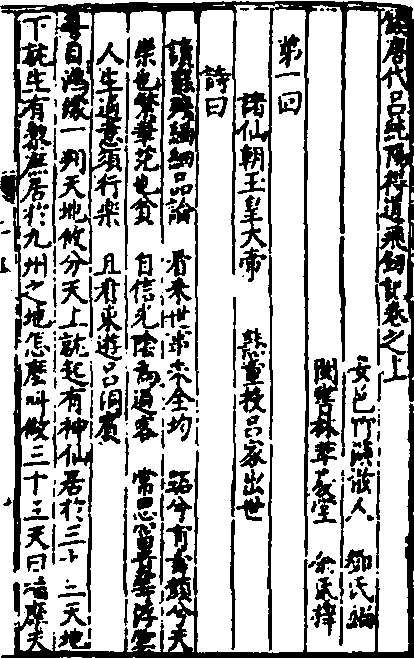 鍥唐代呂純陽得道飛劍記卷之上
安邑竹溪散人 鄧氏編
閩書林萃慶堂 余氏梓
第一回
諸仙朝玉皇大帝 慧童投呂家出世
詩曰
看來世事未全均
榮也繁華死也貧 自信光陰為過客 常思富貴等浮雲
人生適意須行樂 且看東遊呂洞賓
每自鴻濛一判天地攸分天上就起有神仙居於三十三天地
下就生有黎庶居於九州之地怎麼叫做三十三天曰